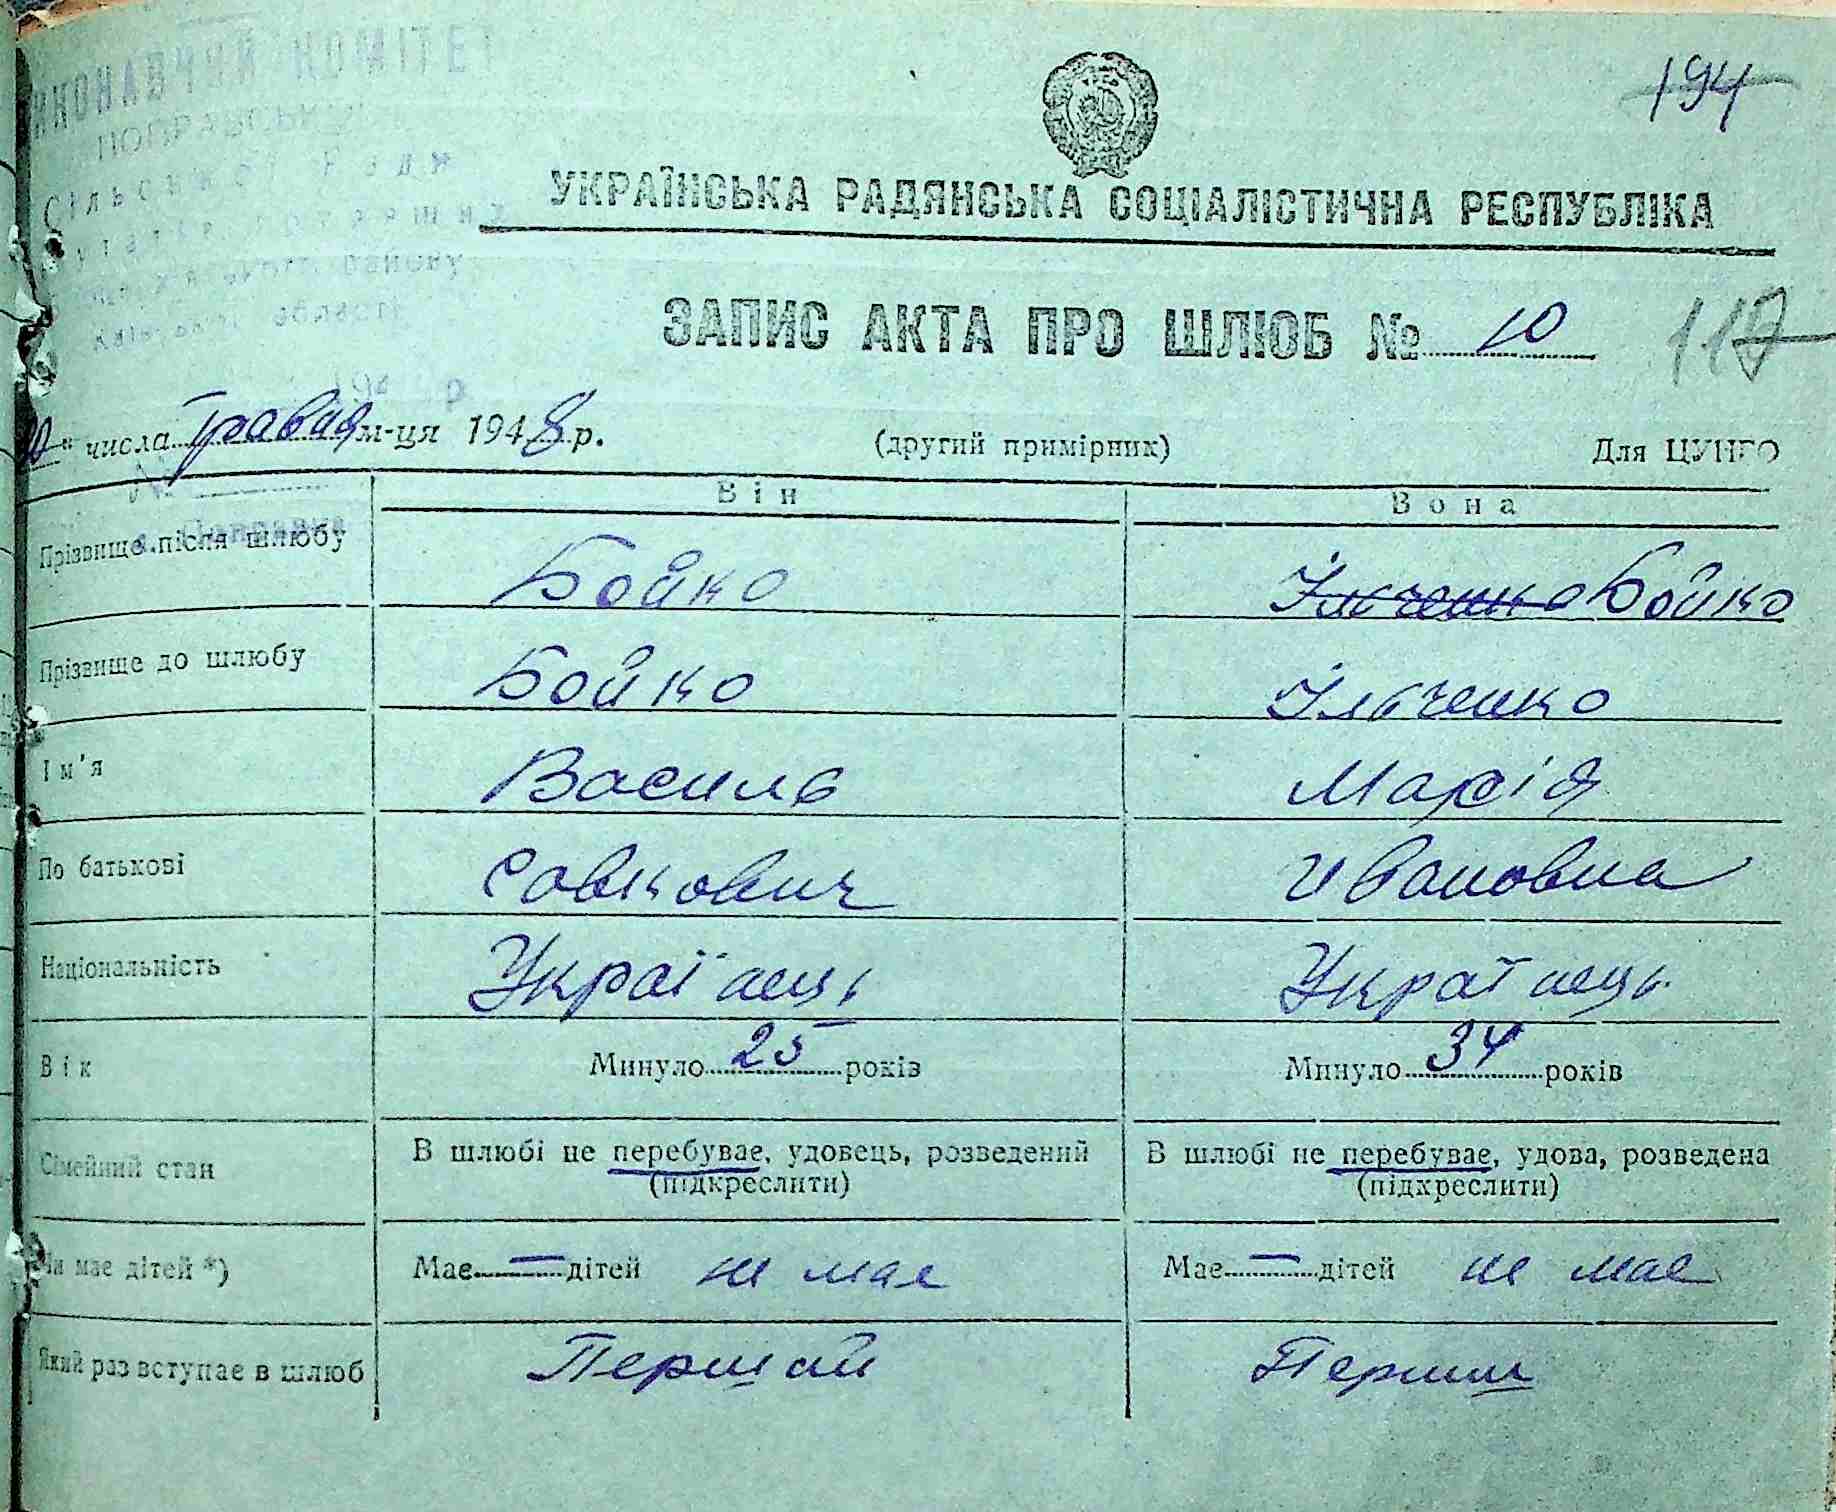 194
ВИКОНАВЧИЙ КОМІТЕТ
Сільської Ради
району
області
УКРАЇНСЬКА РАДЯНСЬКА СОЦІАЛІСТИЧНА РЕСПУБЛІКА
ЗАПИС АКТА ПРО ШЛЮБ № 10
117
10 " числа травня м-ця 1948 р. (другий примірник) Для ЦУНГО
№
Він Вона
Прізвище після шлюбу Бойко Ільченко Бойко
Прізвище до шлюбу Бойко Ільченко
Ім'я Василь Марія
По батькові Савкович Ивановна
Національність Українець Українець
Вік Минуло 25 років Минуло 34 років
Сімейний стан В шлюбі не перебуває, удовець, розведений В шлюбі не перебуває, удова, розведена
(підкреслити) (підкреслити)
Чи має дітей *) Має — дітей не має Має — дітей не має
Який раз вступає в шлюб Перший Перший